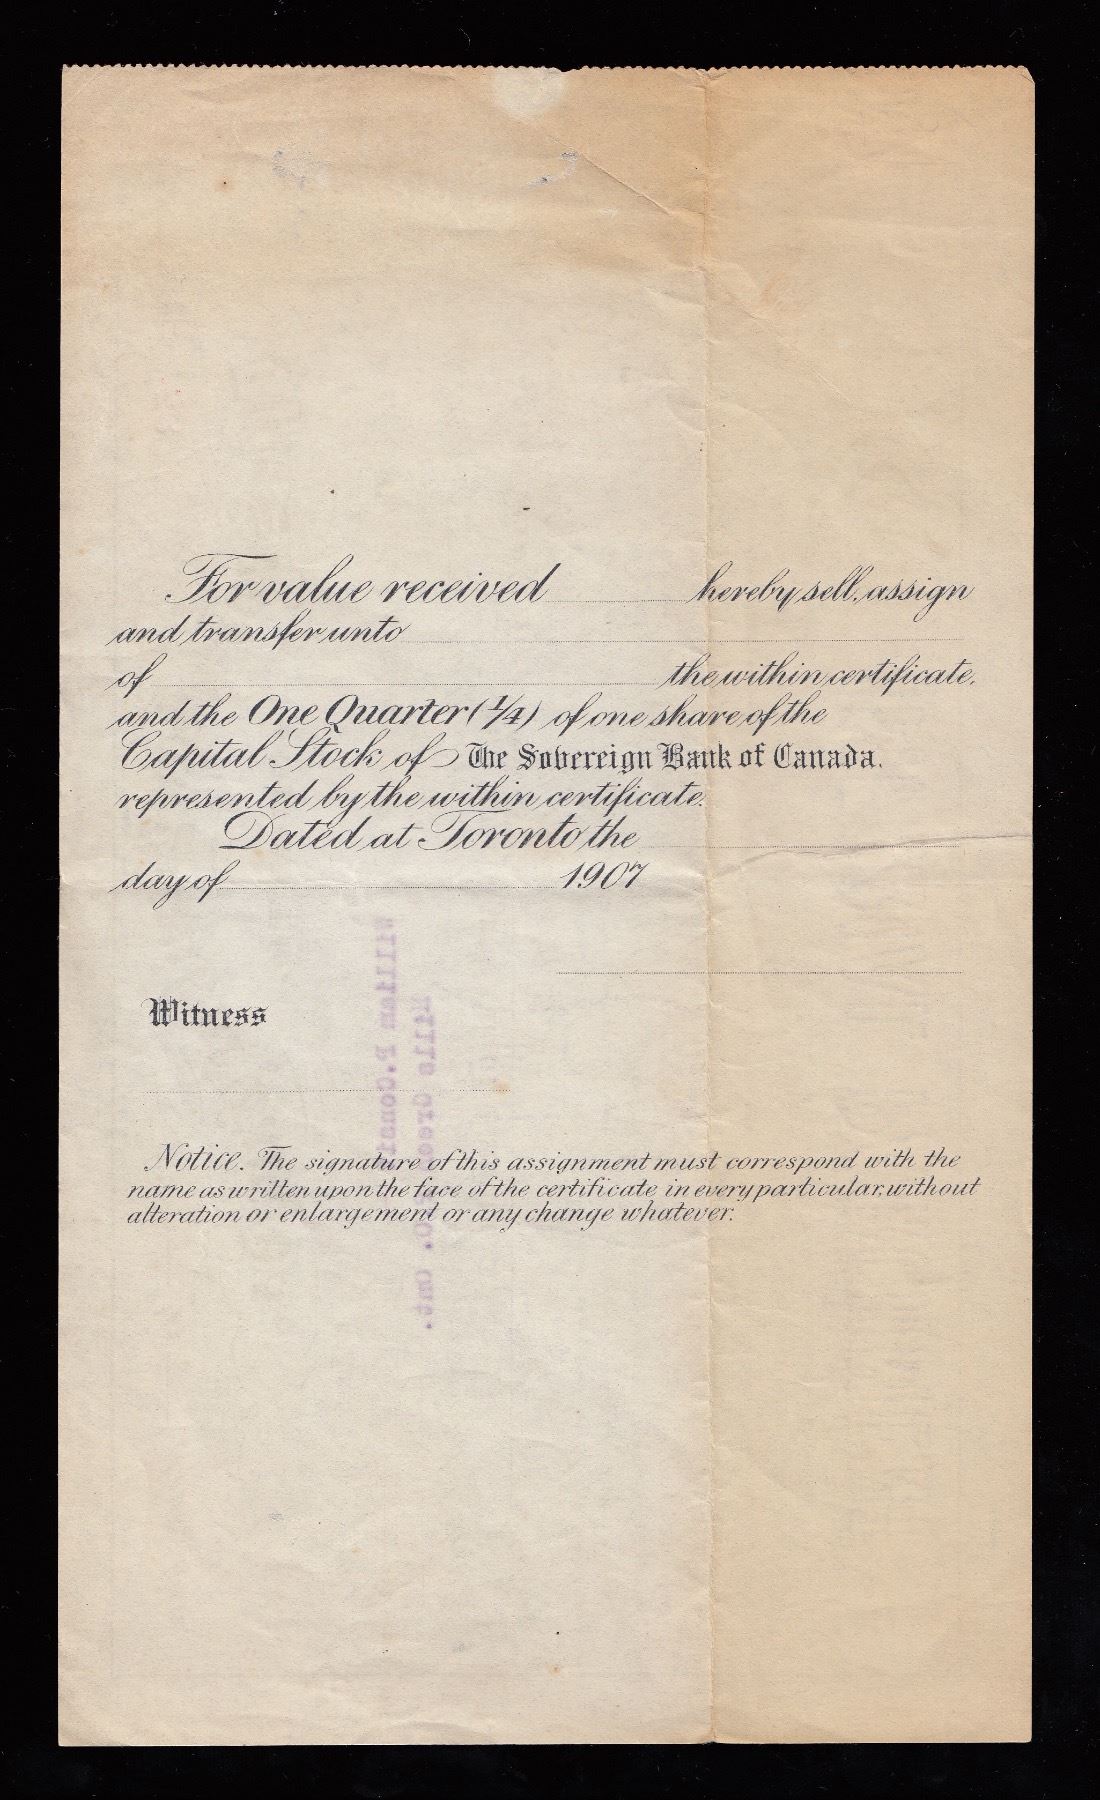 For value received hereby sell, assign
and transfer unto
of the within certificate.
and the One Quarter (1/4) of one share of the
Capital Stock of The Sovereign Bank of Canada.
represented by the within certificate.
Dated at Toronto the
day of 1907
Witness
Notice. The signature of this assignment must correspond with the
name as written upon the face of the certificate in every particular, without
alteration or enlargement or any change whatever.
William P.
Mills
Ont.